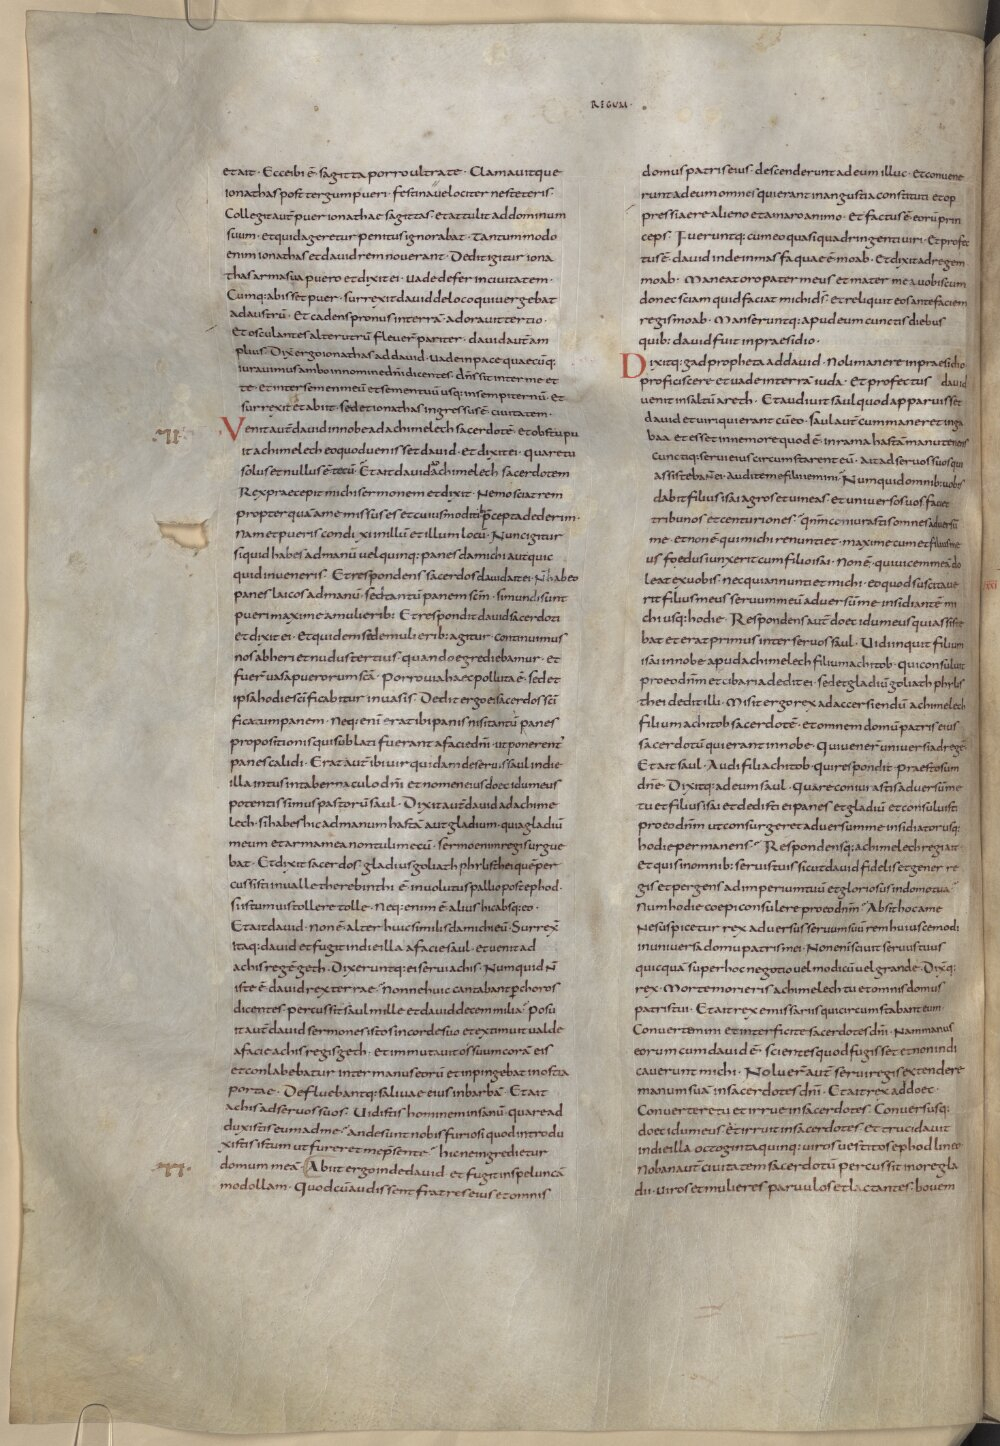 REGUM·
et ait · Ecce ibi ē sagitta porro ultra te · Clamavitque
ionathas post tergum pueri · festina velociter ne steteris ·
Collegit aut̄ puer ionathae sagittas · et attulit ad dominum
suum · et quid ageretur penitus ignorabat · Tantummodo
enim ionathas et david rem noverant · Dedit igitur iona
thas arma sua puero et dixit ei · vade defer in civitatem ·
Cumq: abisset puer · surrexit david de loco qui vergebat
ad austrū · Et cadens pronus in terrā adoravit tertio ·
Et osculantes alterutrū flever̄ pariter · david aut̄ am
plius · Dix̄ ergo ionathas ad david · vade in pace quaecūq:
iuravimus ambo in nomine dn̄i dicentes · dn̄s sit inter me et
te · et inter semen meū et semen tuū usq: in sempiternū · Et
surrexit et abiit · sed et ionathas ingressus ē civitatem ·
VI
Venit aut̄ david in nobe ad achimelech sacerdotē · et obstupu
it achimelech eo quod venisset david · et dixit ei · quare tu
solus et nullus ē tecū · Et ait david ad achimelech sacerdotem
Rex praecepit michi sermonem et dixit · Nemo sciat rem
propter quā a me missus es et cuiusmodi tibi p̄cepta dederim ·
Nam et pueris condixi in illū et illum locū · Nunc igitur
si quid habes ad manū vel quinq: panes da michi aut quic
quid inveneris · Et respondens sacerdos david ait ei · N̄ habeo
panes laicos ad manū · sed tantū panem sc̄m · si mundi sunt
pueri maxime a mulierib: · Et respondit david sacerdoti
et dixit ei · Et quidem si de mulierib: agitur · continuimus
nos ab heri et nudus tertius · quando egrediebamur · et
fuer̄ vasa puerorum sc̄a · Porro via haec polluta ē · sed et
ipsa hodie sc̄ificabitur in vasis · Dedit ergo ei sacerdos sc̄i
ficatum panem · Neq: enī erat ibi panis nisi tantū panes
propositionis qui sublati fuerant a facie dn̄i · ut ponerent̄
panes calidi · Erat aut̄ ibi vir quidam de servis saul in die
illa intus in tabernaculo dn̄i et nomen eius doec idumeus
potentissimus pastorū saul · Dixit aut̄ david ad achime
lech · si habes hic ad manum hastā aut gladium · quia gladiū
meum et arma mea non tuli mecū · sermo enim regis urgue
bat · Et dixit sacerdos · gladius goliath phylisthei quē per
cussisti in valle therebinthi ē involutus pallio post ephod ·
si istum vis tollere tolle · Neq: enim ē alius hic absq: eo ·
Et ait david · Non ē alter huic similis da michi eū · Surrex̄
itaq: david et fugit in die illa a facie saul · et venit ad
achis regē geth · Dixeruntq: ei servi achis · Numquid n̄
iste ē david rex terrae · Nonne huic cantabant p choros
dicentes · percussit saul mille et david decem milia · Posu
it aut̄ david sermones istos in corde suo et extimuit valde
a facie achis regis geth · et immutavit os suum corā eis
et conlabebatur inter manus eorū et inpingebat in ostia
portae · Defluebantq: salivae eius in barbā · Et ait
achis ad servos suos · Vidistis hominem insanū · quare ad
duxistis eum ad me · an desunt nobis furiosi quod introdu
xistis istum ut fureret me p̄sente · hicne ingredietur
VII ·
domum meā · Abiit ergo inde david et fugit in speluncā
modollam · Quod cū audissent fratres eius et omnis
domus patris eius · descenderunt ad eum illuc · Et convene
runt ad eum omnes qui erant in angustia constituti et op
pressi aere alieno et amaro animo · Et factus ē eorū prin
ceps · Fueruntq: cum eo quasi quadringenti viri · Et profec
tus ē david inde in masfa quae ē moab · Et dixit ad regem
moab · Maneat oro pater meus et mater mea vobiscum
donec sciam quid faciat michi d̄s · Et reliquit eos ante faciem
regis moab · Manseruntq: apud eum cunctis diebus
quib: david fuit in praesidio ·
Dixitq: gad propheta ad david · Noli manere in praesidio
proficiscere et vade in terrā iuda · Et profectus david
venit in saltū areth · Et audivit saul quod apparuisset
david et viri qui erant cū eo · Saul aut̄ cum maneret in ga
baa et esset in nemore quod ē in rama hastā manu tenens
cunctiq: servi eius circumstarent eū · ait ad servos suos qui
assistebant ei · audite me filii iemini · Numquid omnib: vobis
dabit filius isai agros et vineas · et universos vos faciet
tribunos et centuriones · qn̄m coniurastis omnes adversū
me · et non ē qui michi renuntiet · maxime cum et filius me
us foedus iunxerit cum filio isai · Non ē qui vicem meā do
leat ex vobis · nec qui annuntiet michi · eo quod suscitave
rit filius meus servum meū adversū me · insidiantē mi
chi usq: hodie · Respondens aut̄ doec idumeus qui assiste
bat et erat primus inter servos saul · Vidi inquit filium
isai in nobe apud achimelech filium achitob · Qui consuluit
pro eo dn̄m et cibaria dedit ei · sed et gladiū goliath phylis
thei dedit illi · Misit ergo rex ad accersiendū achimelech
filium achitob sacerdotē · et omnem domū patris eius ·
sacerdotū qui erant in nobe · Qui vener̄ universi ad regē
Et ait saul · Audi fili achitob · Qui respondit · Praesto sum
dn̄e · Dixitq: ad eum saul · Quare coniurastis adversū me
tu et filius isai et dedisti ei panes et gladiū et consuluisti
pro eo dn̄m ut consurgeret adversum me insidiator usq:
hodie permanens · Respondensq: achimelech regi ait ·
Et quis in omnib: servis tuis sicut david fidelis et gener re
gis et pergens ad imperium tuū et gloriosus in domo tua ·
Num hodie coepi consulere pro eo dn̄m · Absit hoc a me
Ne suspicetur rex adversus servum suū rem huiuscemodi
in universa domu patris mei · Non enī scivit servus tuus
quicquā super hoc negotio vel modicū vel grande · Dix̄q:
rex · Morte morieris achimelech tu et omnis domus
patris tui · Et ait rex emissariis qui circumstabant eum ·
Convertimini et interficite sacerdotes dn̄i · Nam manus
eorum cum david ē · scientes quod fugisset et non indi
caverunt michi · Noluer̄ aut̄ servi regis extendere
manum suā in sacerdotes dn̄i · Et ait rex ad doec ·
Convertere tu et irrue in sacerdotes · Conversusq:
doec idumeus et irruit in sacerdotes et trucidavit
in die illa octoginta quinq: viros vestitos ephod lineo
Noban aut̄ civitatem sacerdotū percussit in ore gla
dii · viros et mulieres parvulos et lactantes · bovem
XXI